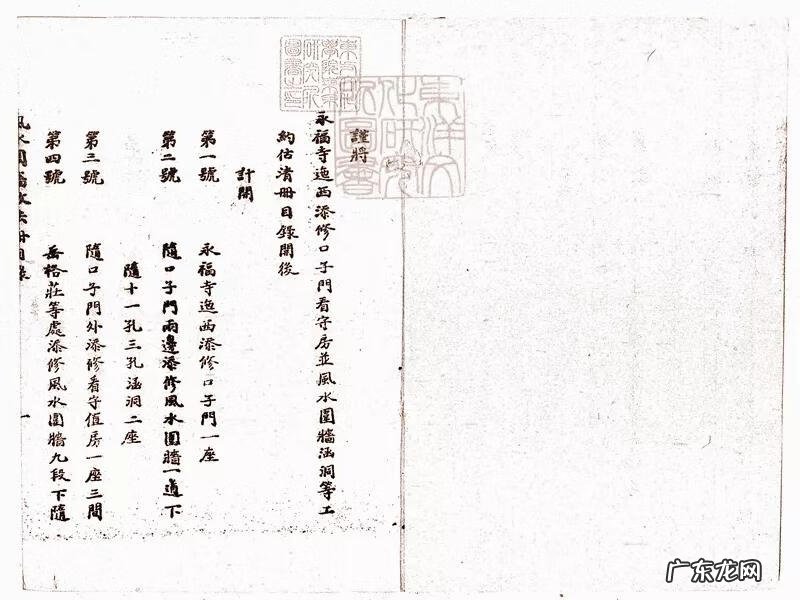 謹將
永福寺迤西添修口子門看守房並風水圍牆涵洞等工
約估清冊目錄開後
計開
第一號 永福寺迤西添修口子門一座
第二號 隨口子門兩邊添修風水圍牆一道下
隨十一孔三孔涵洞二座
第三號 隨口子門外添修看守值房一座三間
第四號 岳格莊等處添修風水圍牆九段下隨
一
广东龙网